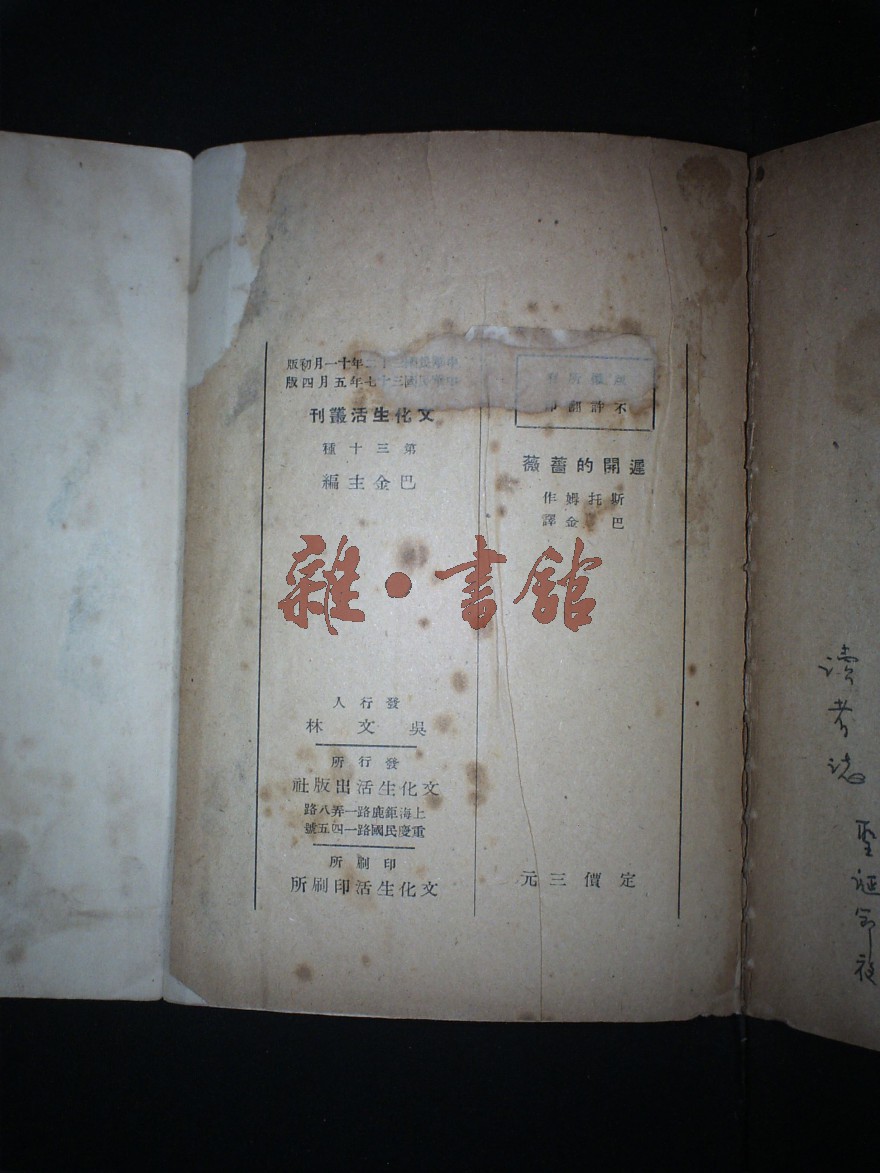 版權所有
不許翻印
遲開的薔薇
斯托姆作
巴金譯
定價三元
中華民國三十二年十一月初版
中華民國三十七年五月四版
文化生活叢刊
第三十種
巴金主編
發行人
吳文林
發行所
文化生活出版社
上海鉅鹿路一弄八路
重慶民國路一四五號
印刷所
文化生活印刷所
雜·書館
圣诞节夜